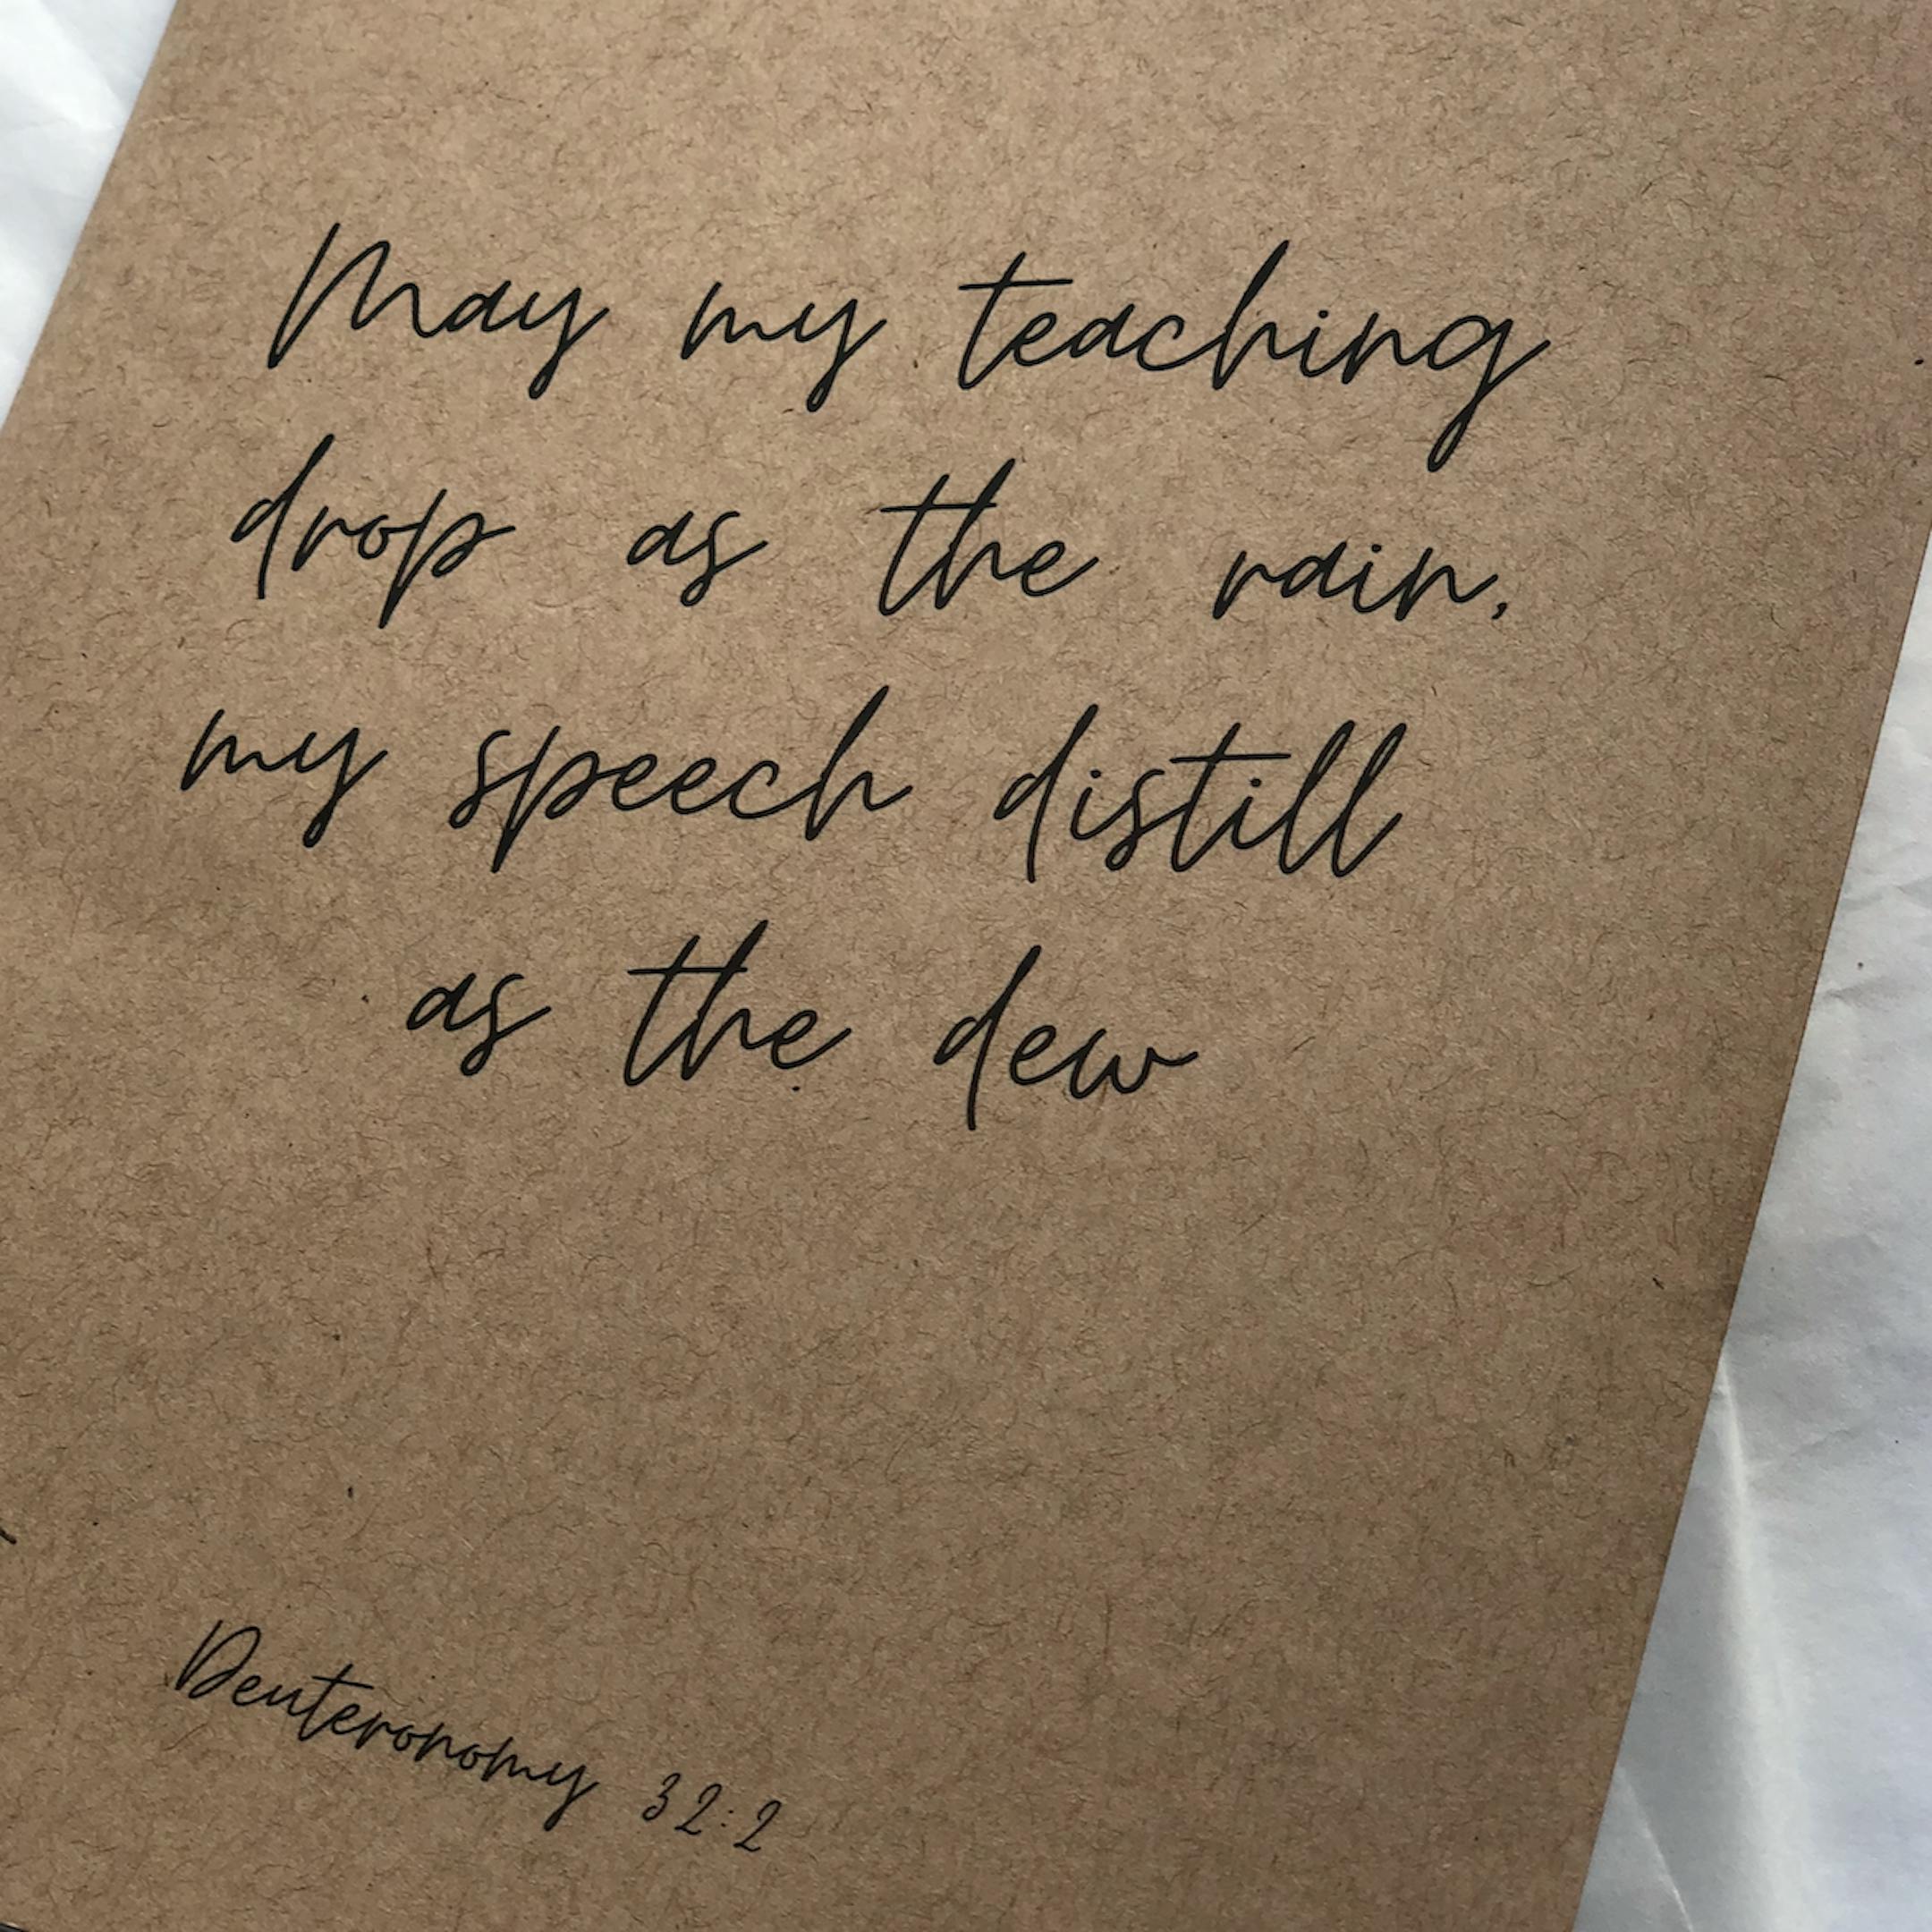 May my teaching
drop as the rain,
my speech distill
as the dew
Deuteronomy 32:2